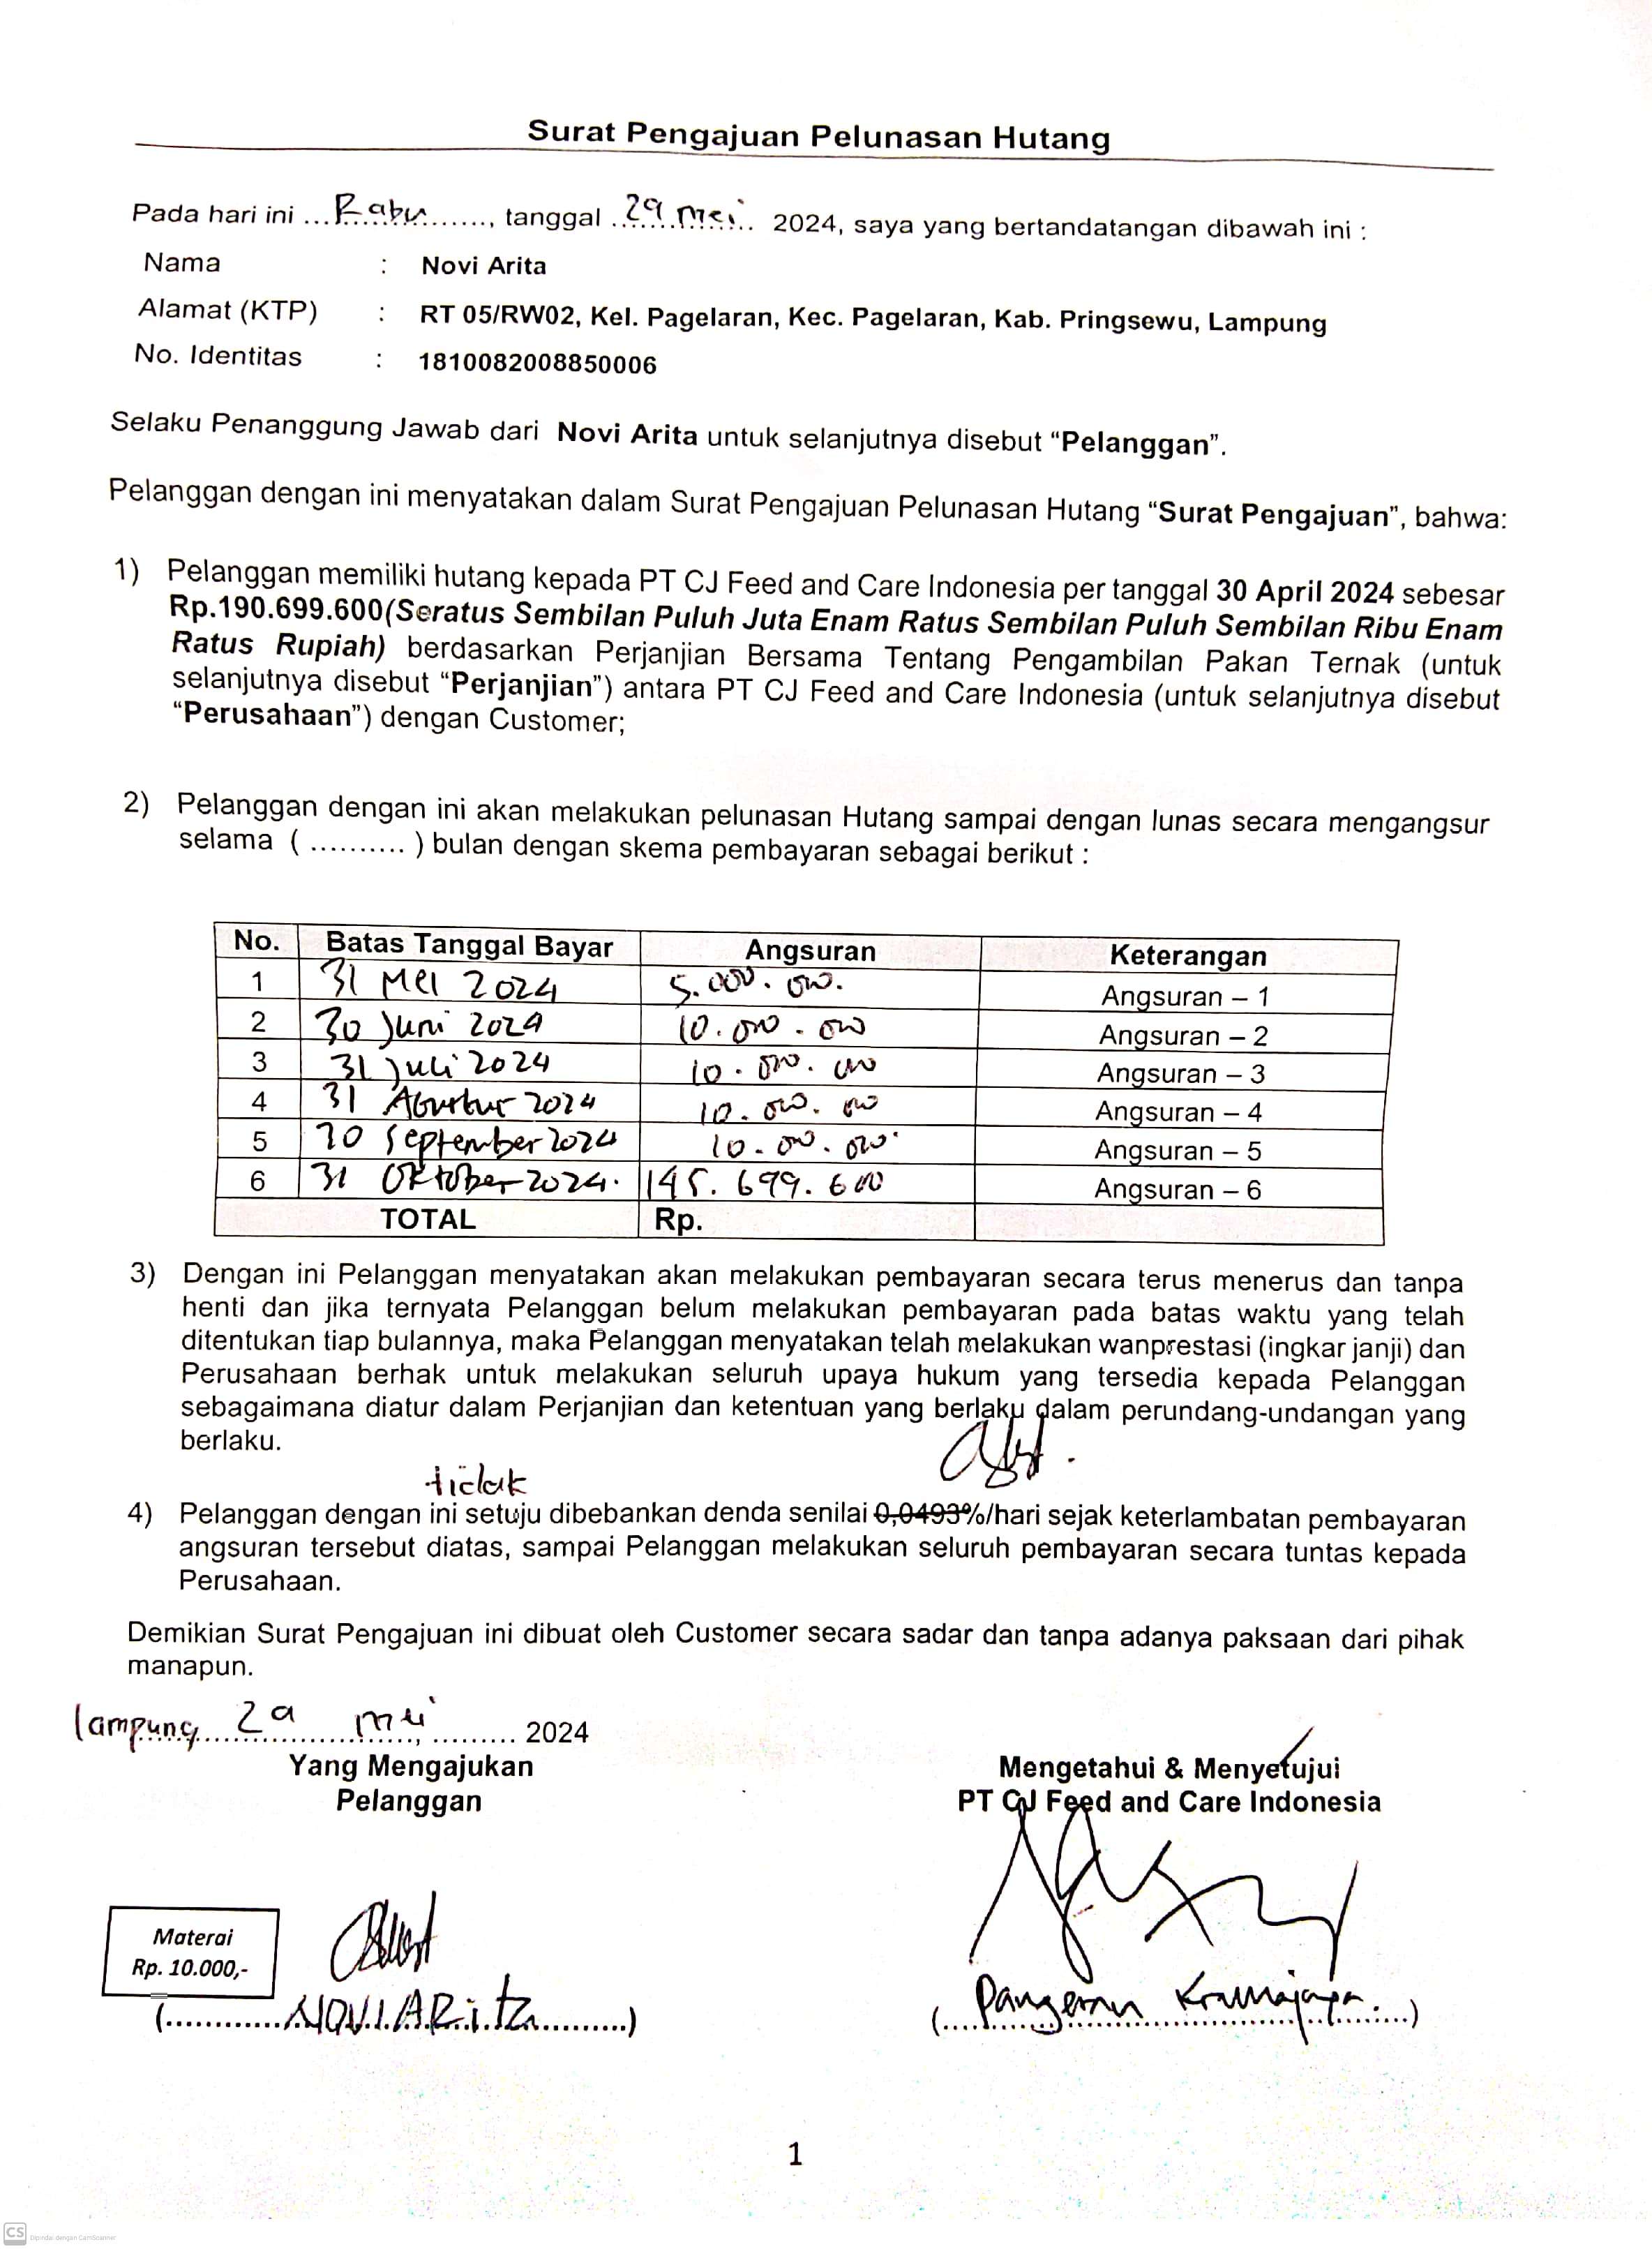 Surat Pengajuan Pelunasan Hutang
Pada hari ini ...Rabu..........., tanggal ...29 mei... 2024, saya yang bertandatangan dibawah ini :
Nama : Novi Arita
Alamat (KTP) : RT 05/RW02, Kel. Pagelaran, Kec. Pagelaran, Kab. Pringsewu, Lampung
No. Identitas : 1810082008850006
Selaku Penanggung Jawab dari Novi Arita untuk selanjutnya disebut “Pelanggan”.
Pelanggan dengan ini menyatakan dalam Surat Pengajuan Pelunasan Hutang “Surat Pengajuan”, bahwa:
1) Pelanggan memiliki hutang kepada PT CJ Feed and Care Indonesia per tanggal 30 April 2024 sebesar
Rp.190.699.600(Seratus Sembilan Puluh Juta Enam Ratus Sembilan Puluh Sembilan Ribu Enam
Ratus Rupiah) berdasarkan Perjanjian Bersama Tentang Pengambilan Pakan Ternak (untuk
selanjutnya disebut “Perjanjian”) antara PT CJ Feed and Care Indonesia (untuk selanjutnya disebut
“Perusahaan”) dengan Customer;
2) Pelanggan dengan ini akan melakukan pelunasan Hutang sampai dengan lunas secara mengangsur
selama ( .......... ) bulan dengan skema pembayaran sebagai berikut :
No. Batas Tanggal Bayar Angsuran Keterangan
1 31 Mei 2024 5.000.000. Angsuran – 1
2 30 Juni 2024 10.000.000 Angsuran – 2
3 31 Juli 2024 10.000.000 Angsuran – 3
4 31 Agustus 2024 10.000.000 Angsuran – 4
5 30 September 2024 10.000.000 Angsuran – 5
6 31 Oktober 2024. 145.699.600 Angsuran – 6
TOTAL Rp.
3) Dengan ini Pelanggan menyatakan akan melakukan pembayaran secara terus menerus dan tanpa
henti dan jika ternyata Pelanggan belum melakukan pembayaran pada batas waktu yang telah
ditentukan tiap bulannya, maka Pelanggan menyatakan telah melakukan wanprestasi (ingkar janji) dan
Perusahaan berhak untuk melakukan seluruh upaya hukum yang tersedia kepada Pelanggan
sebagaimana diatur dalam Perjanjian dan ketentuan yang berlaku dalam perundang-undangan yang
berlaku.
tidak
4) Pelanggan dengan ini setuju dibebankan denda senilai 0,0493%/hari sejak keterlambatan pembayaran
angsuran tersebut diatas, sampai Pelanggan melakukan seluruh pembayaran secara tuntas kepada
Perusahaan.
Demikian Surat Pengajuan ini dibuat oleh Customer secara sadar dan tanpa adanya paksaan dari pihak
manapun.
Lampung 29 mei 2024
Yang Mengajukan
Pelanggan
Mengetahui & Menyetujui
PT CJ Feed and Care Indonesia
Materai
Rp. 10.000,-
(............NOVI ARita..........)
(....Pangeran Kramajaya.....)
1
CS Dipindai dengan CamScanner